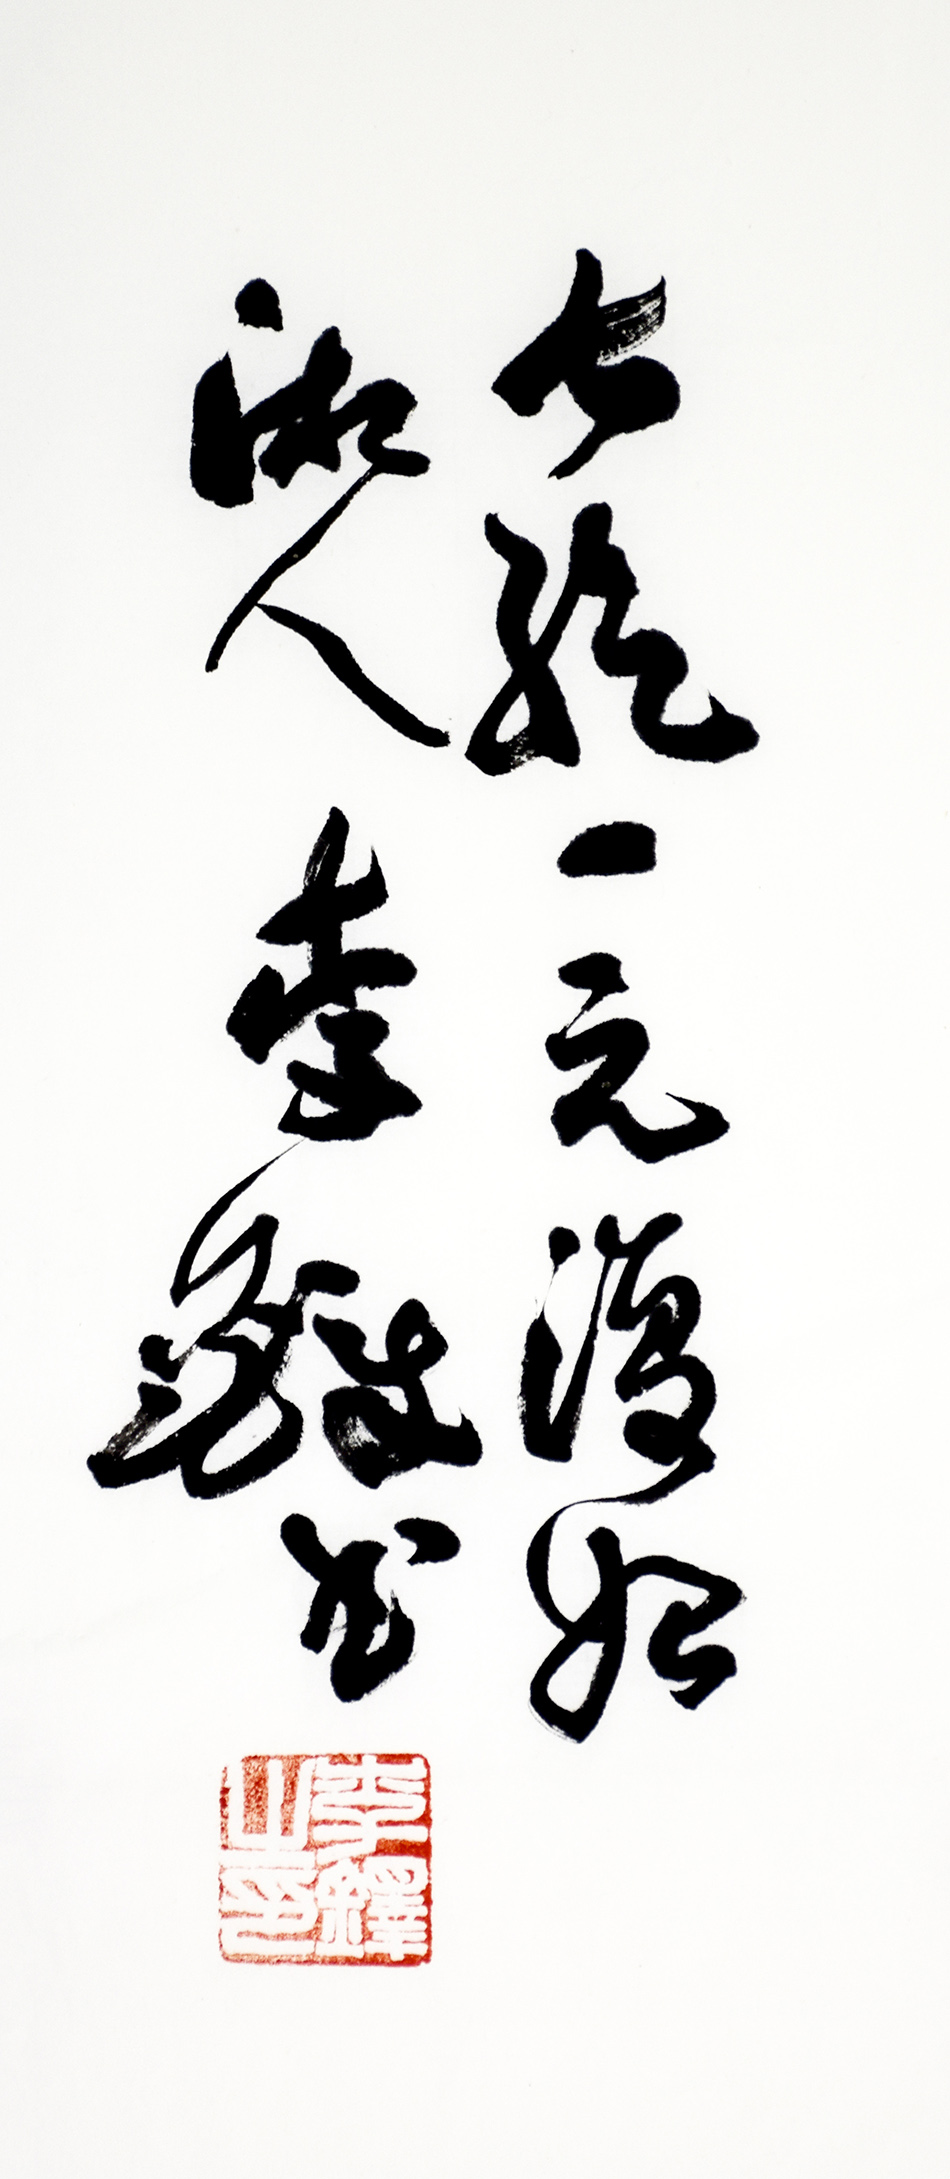 一元復始
湘人李鐸书
李鐸之印